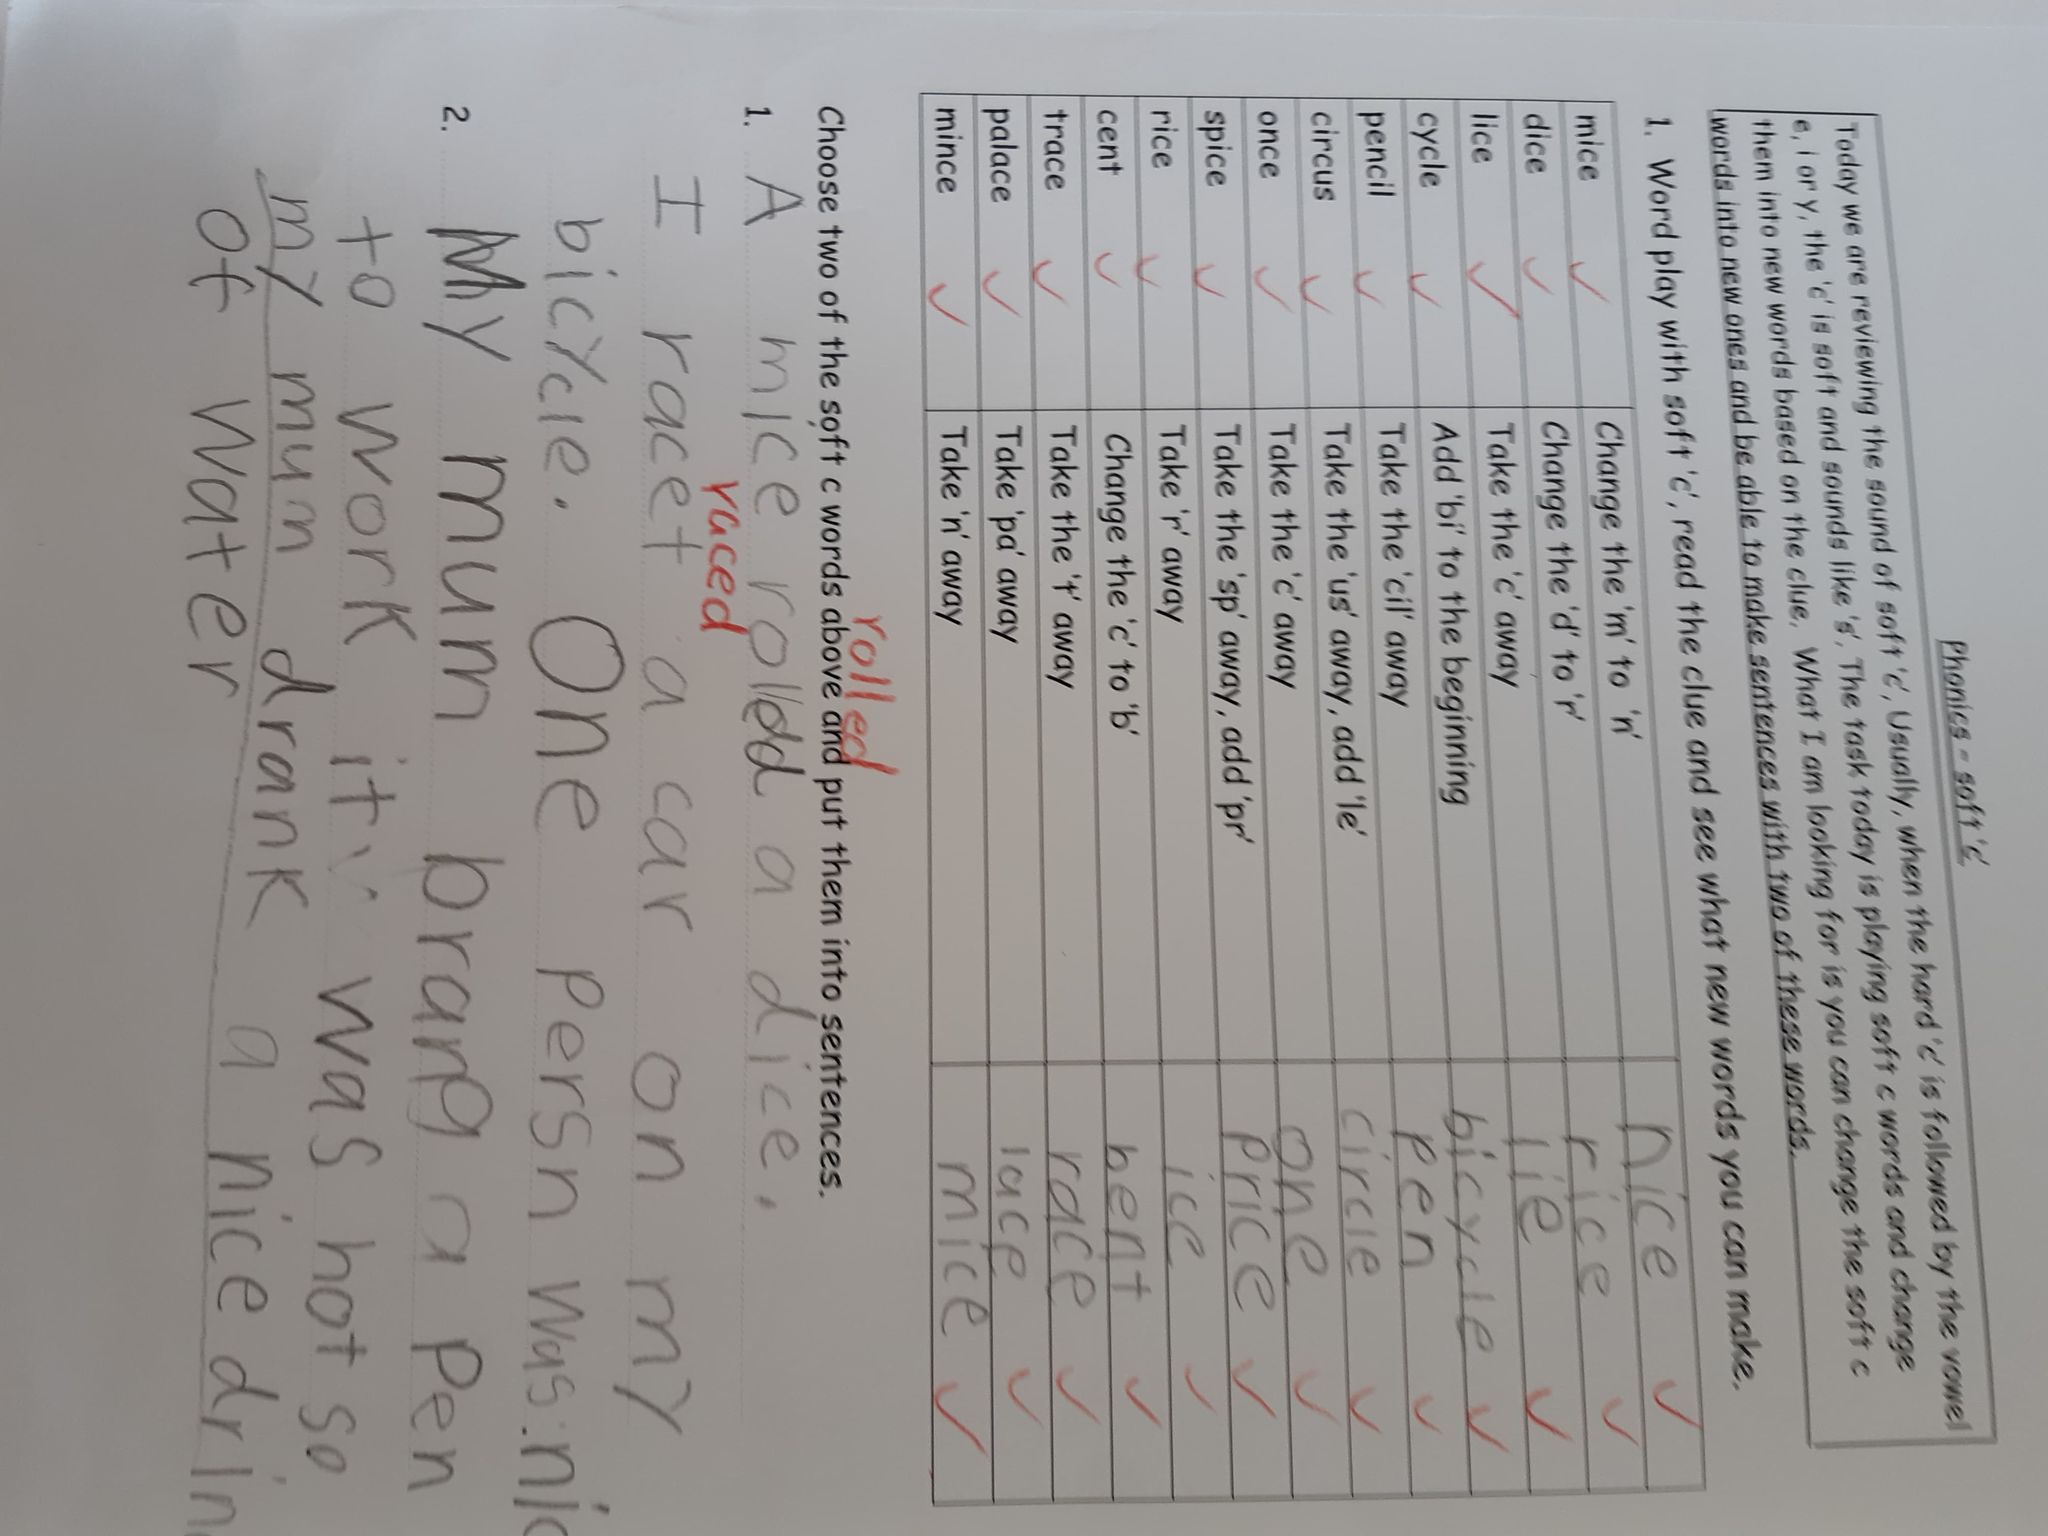 Phonics – soft 'c'
Today we are reviewing the sound of soft 'c'. Usually, when the hard 'c' is followed by the vowel
e, i or y, the 'c' is soft and sounds like 's'. The task today is playing soft c words and change
them into new words based on the clue. What I am looking for is you can change the soft c
words into new ones and be able to make sentences with two of these words.
1. Word play with soft 'c', read the clue and see what new words you can make.
mice Change the 'm' to 'n' nice
dice Change the 'd' to 'r' rice
lice Take the 'c' away lie
cycle Add 'bi' to the beginning bicycle
pencil Take the 'cil' away pen
circus Take the 'us' away, add 'le' circle
once Take the 'c' away one
spice Take the 'sp' away, add 'pr' price
rice Take 'r' away ice
cent Change the 'c' to 'b' bent
trace Take the 't' away race
palace Take 'pa' away lace
mince Take 'n' away mice
Choose two of the soft c words above and put them into sentences.
rolled
1. A mice rolled a dice.
raced
I racet a car on my
bicycle. One persn was nic
2. My mum brang a pen
to work it was hot so
my mum drank a nice drin
of water